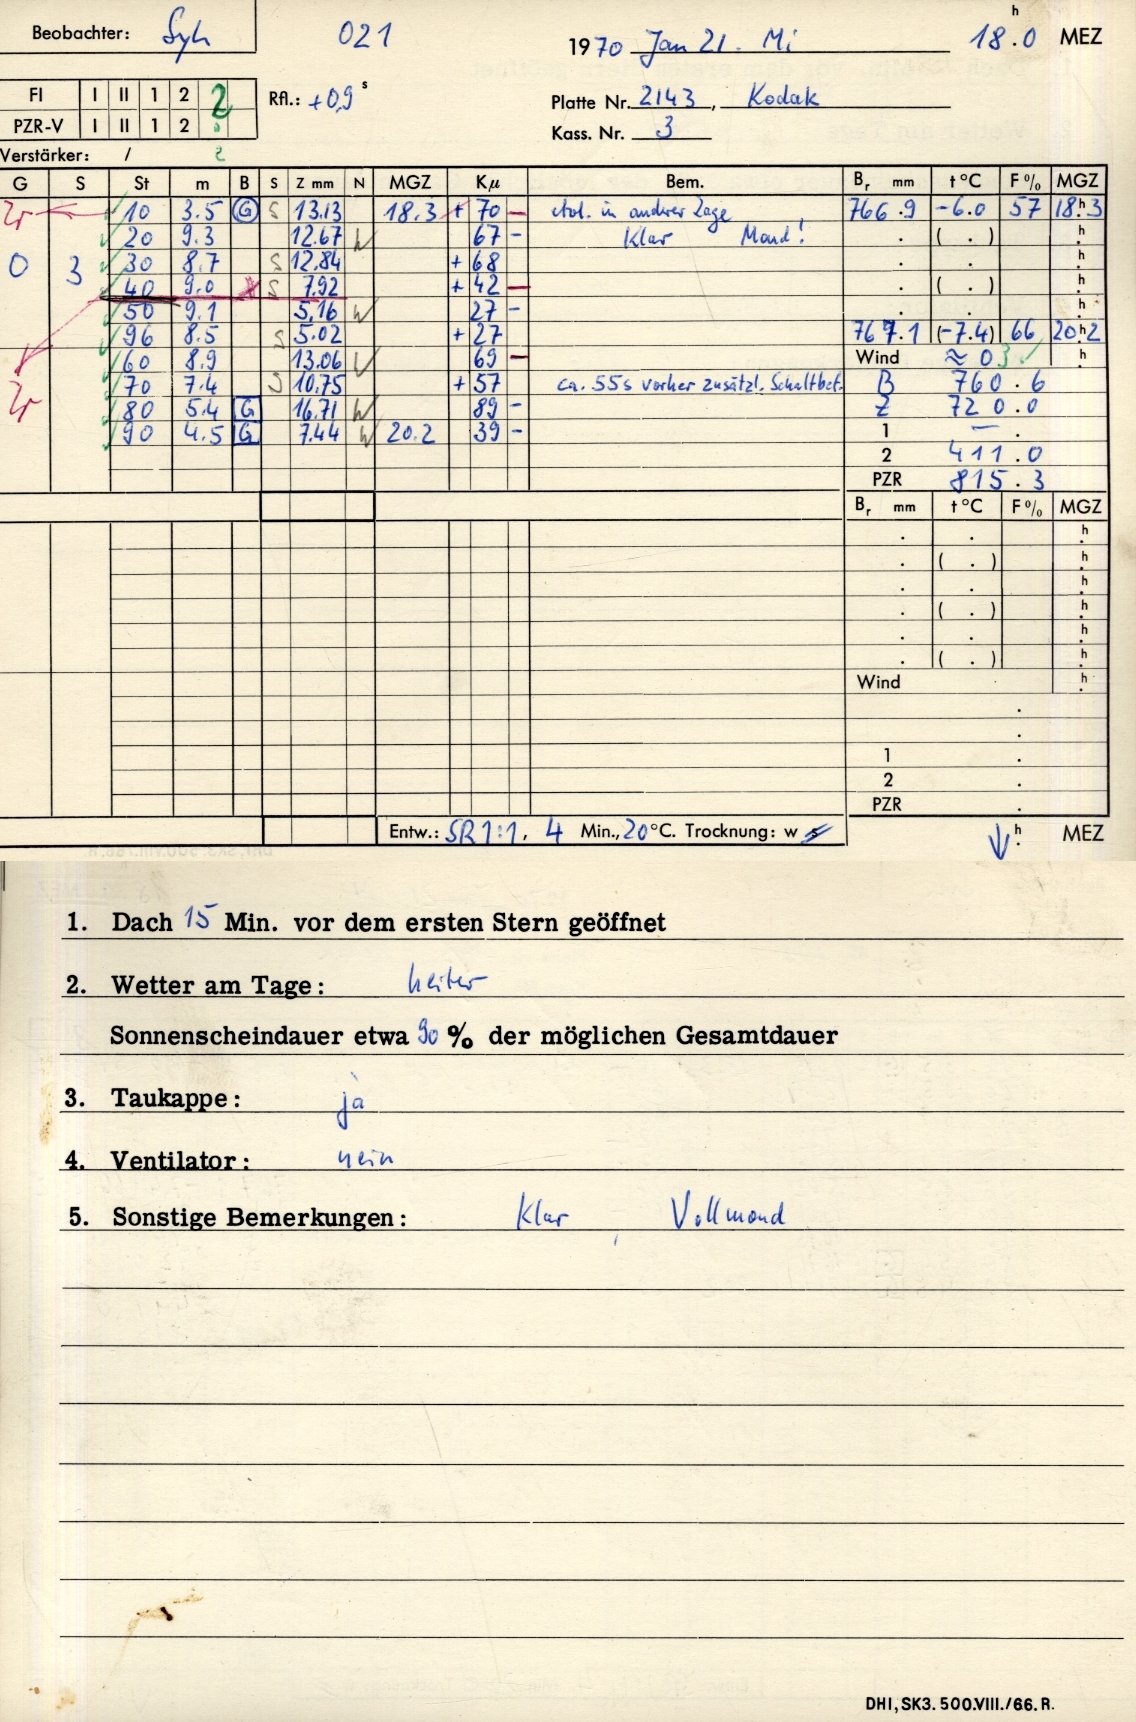 Beobachter: Syh 021 1970 Jan 21. Mi 18.0 h MEZ
FI I II 1 2 2 Rfl.: +0,9 s Platte Nr. 2143, Kodak
PZR-V I II 1 2 Kass. Nr. 3
Verstärker: / 2
G S St m B S Z mm N MGZ Kμ Bem. Br mm t °C F % MGZ
10 3.5 G S 13.13 18.3 + 70 – in andrer Lage 766.9 -6.0 57 18.3 h
20 9.3 12.67 W 67 – Klar Mond! . ( . ) h
0 3 30 8.7 S 12.84 + 68 . . h
40 9.0 S 7.92 + 42 – . ( . ) h
50 9.1 5.16 W 27 – . . h
96 8.5 S 5.02 + 27 767.1 (-7.4) 66 20.2 h
60 8.9 13.06 W 69 – Wind ≈ 03 h
70 7.4 S 10.75 + 57 ca. 55s vorher zusätzl. Schaltbet. B 760.6
80 5.4 G 16.71 W 89 – Z 720.0
90 4.5 G 7.44 W 20.2 39 – 1 — .
2 411.0
PZR 815.3
Br mm t °C F % MGZ
. . h
. ( . ) h
. . h
. ( . ) h
. . h
. ( . ) h
Wind h
.
.
1 .
2 .
PZR .
Entw.: SR 1:1, 4 Min., 20 °C. Trocknung: w s ↓ h MEZ
1. Dach 15 Min. vor dem ersten Stern geöffnet
2. Wetter am Tage: heiter
Sonnenscheindauer etwa 90 % der möglichen Gesamtdauer
3. Taukappe: ja
4. Ventilator: nein
5. Sonstige Bemerkungen: Klar, Vollmond
DHI, SK3. 500.VIII./66. R.